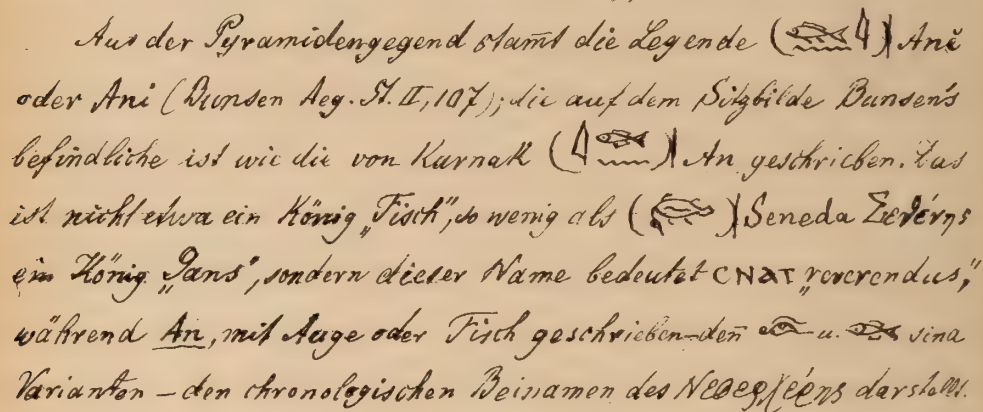 Aus der Pyramidengegend stam̄t die Legende ( ) Anĕ
oder Ani (Bunsen Aeg. St. II, 107); die auf dem Sitzbilde Bunsen's
befindliche ist wie die von Karnak ( ) An geschrieben. Das
ist nicht etwa ein König „Fisch", so wenig als ( ) Seneda
ein König „Gans", sondern dieser Name bedeutet CNAT „reverendus,"
während An, mit Auge oder Fisch geschrieben – den̄ u. sind
Varianten – den chronologischen Beinamen des darstellt.